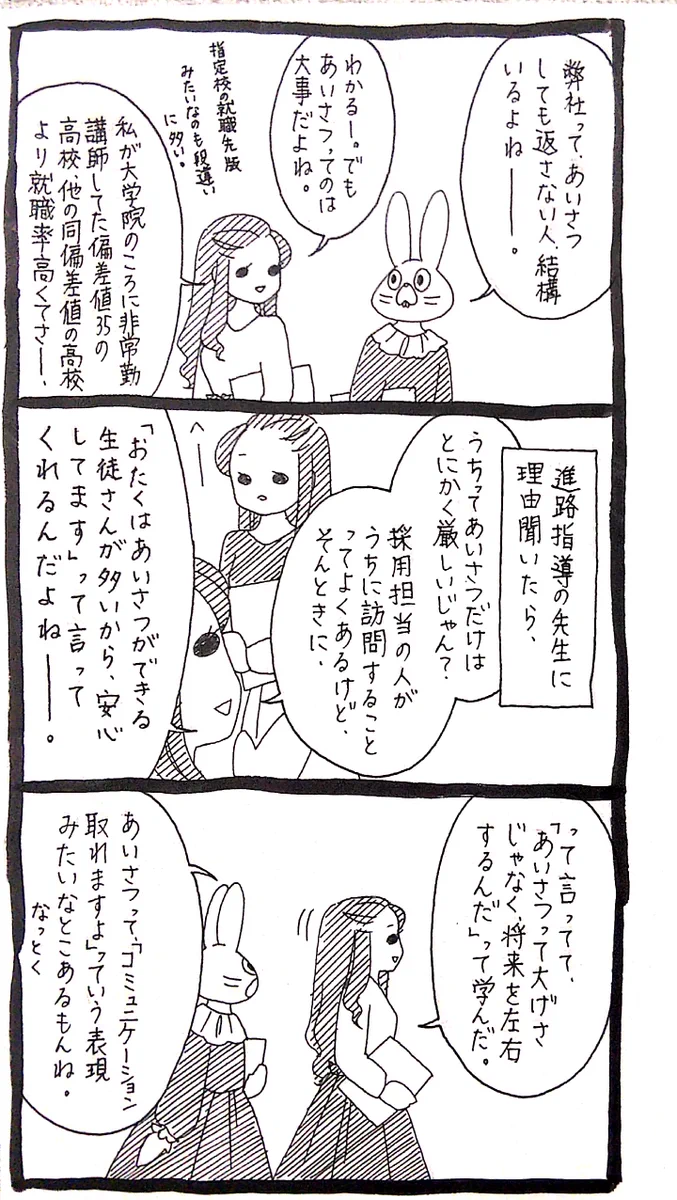 弊社って、あいさつ
しても返さない人、結構
いるよねーー。
わかるー。でも
あいさつってのは
大事だよね。
指定校の就職先版
みたいなのも段違い
に多い。
私が大学院のころに非常勤
講師してた偏差値35の
高校、他の同偏差値の高校
より就職率高くてさー、
進路指導の先生に
理由聞いたら、
うちってあいさつだけは
とにかく厳しいじゃん?
採用担当の人が
うちに訪問すること
ってよくあるけど、
そんときに、
へー
「おたくはあいさつができる
生徒さんが多いから、安心
してます」って言って
くれるんだよねーー。
って言ってて、
「あいさつって大げさ
じゃなく、将来を左右
するんだ」って学んだ。
あいさつって、「コミュニケーション
取れますよ」っていう表現
みたいなとこあるもんね。
なっとく